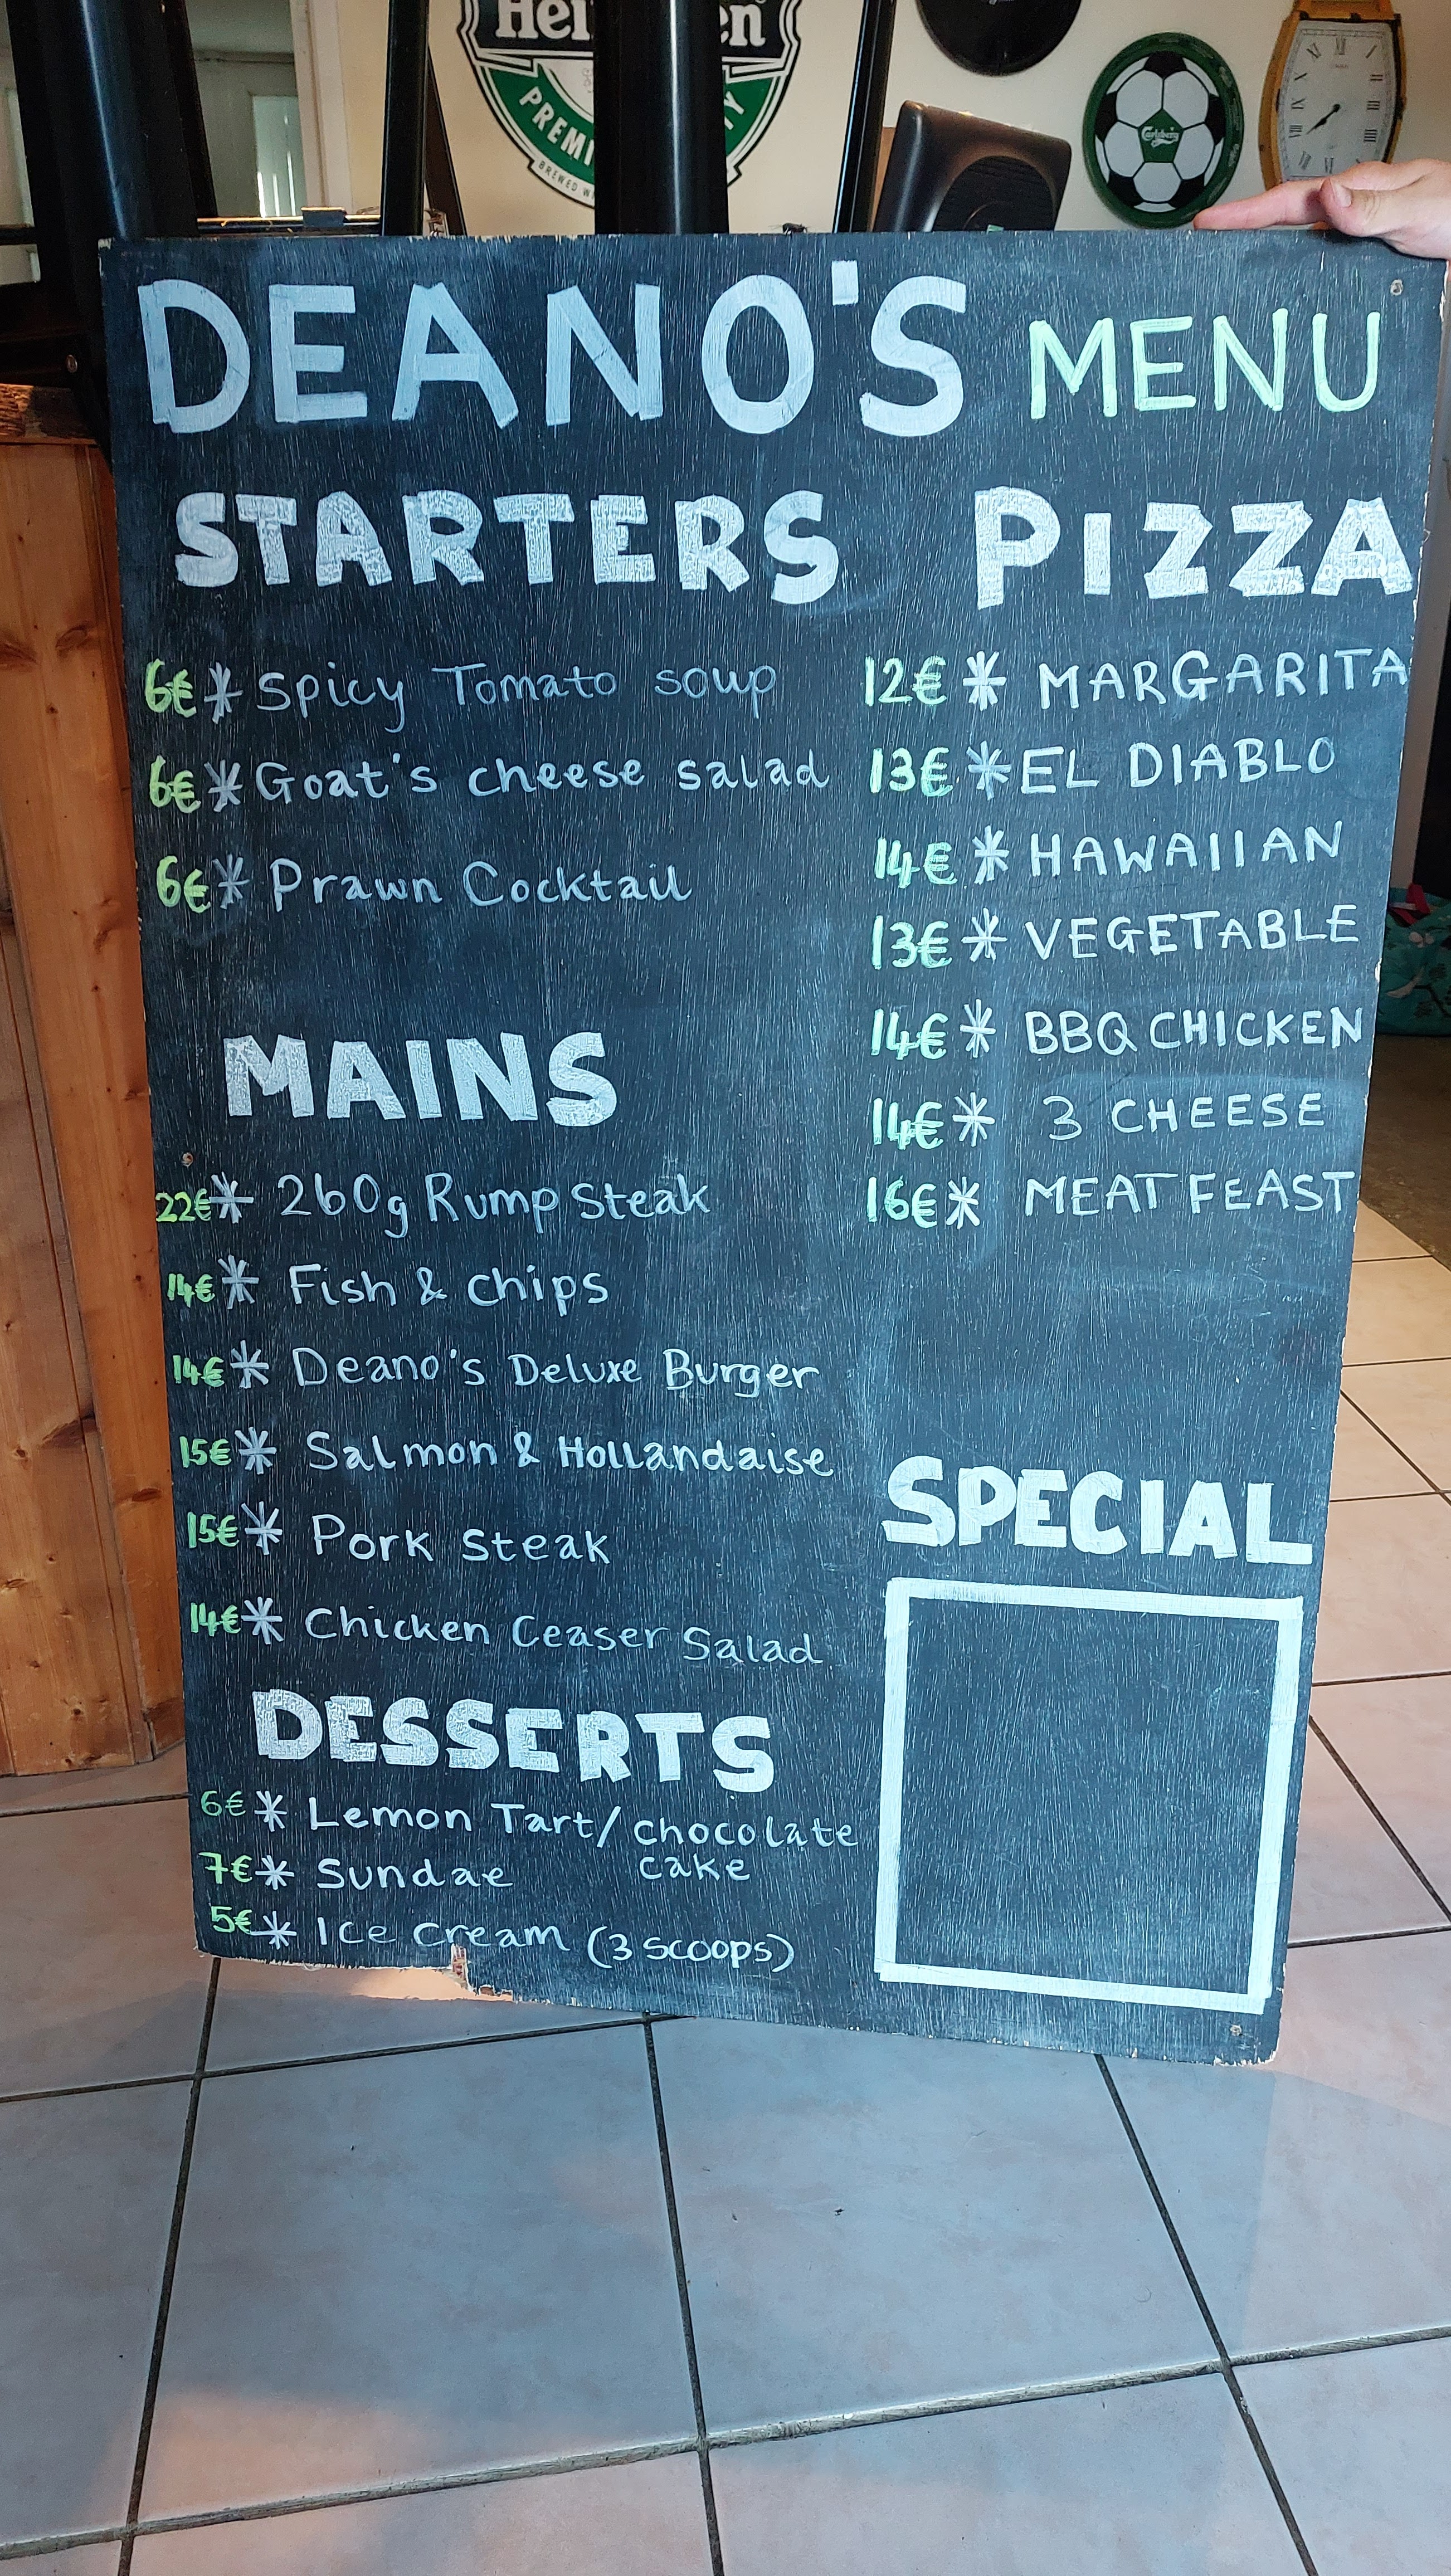 Hei
en
PREMI
TY
BREWED W
Carlsberg
DEANO'S MENU
STARTERS
6€ * Spicy Tomato soup
6€ * Goat's cheese salad
6€ * Prawn Cocktail
MAINS
22€ * 260g Rump Steak
14€ * Fish & chips
14€ * Deano's Deluxe Burger
15€ * Salmon & Hollandaise
15€ * Pork Steak
14€ * Chicken Ceaser Salad
DESSERTS
6€ * Lemon Tart/ chocolate
cake
7€ * Sundae
5€ * Ice cream (3 scoops)
PIZZA
12€ * MARGARITA
13€ * EL DIABLO
14€ * HAWAIIAN
13€ * VEGETABLE
14€ * BBQ CHICKEN
14€ * 3 CHEESE
16€ * MEAT FEAST
SPECIAL